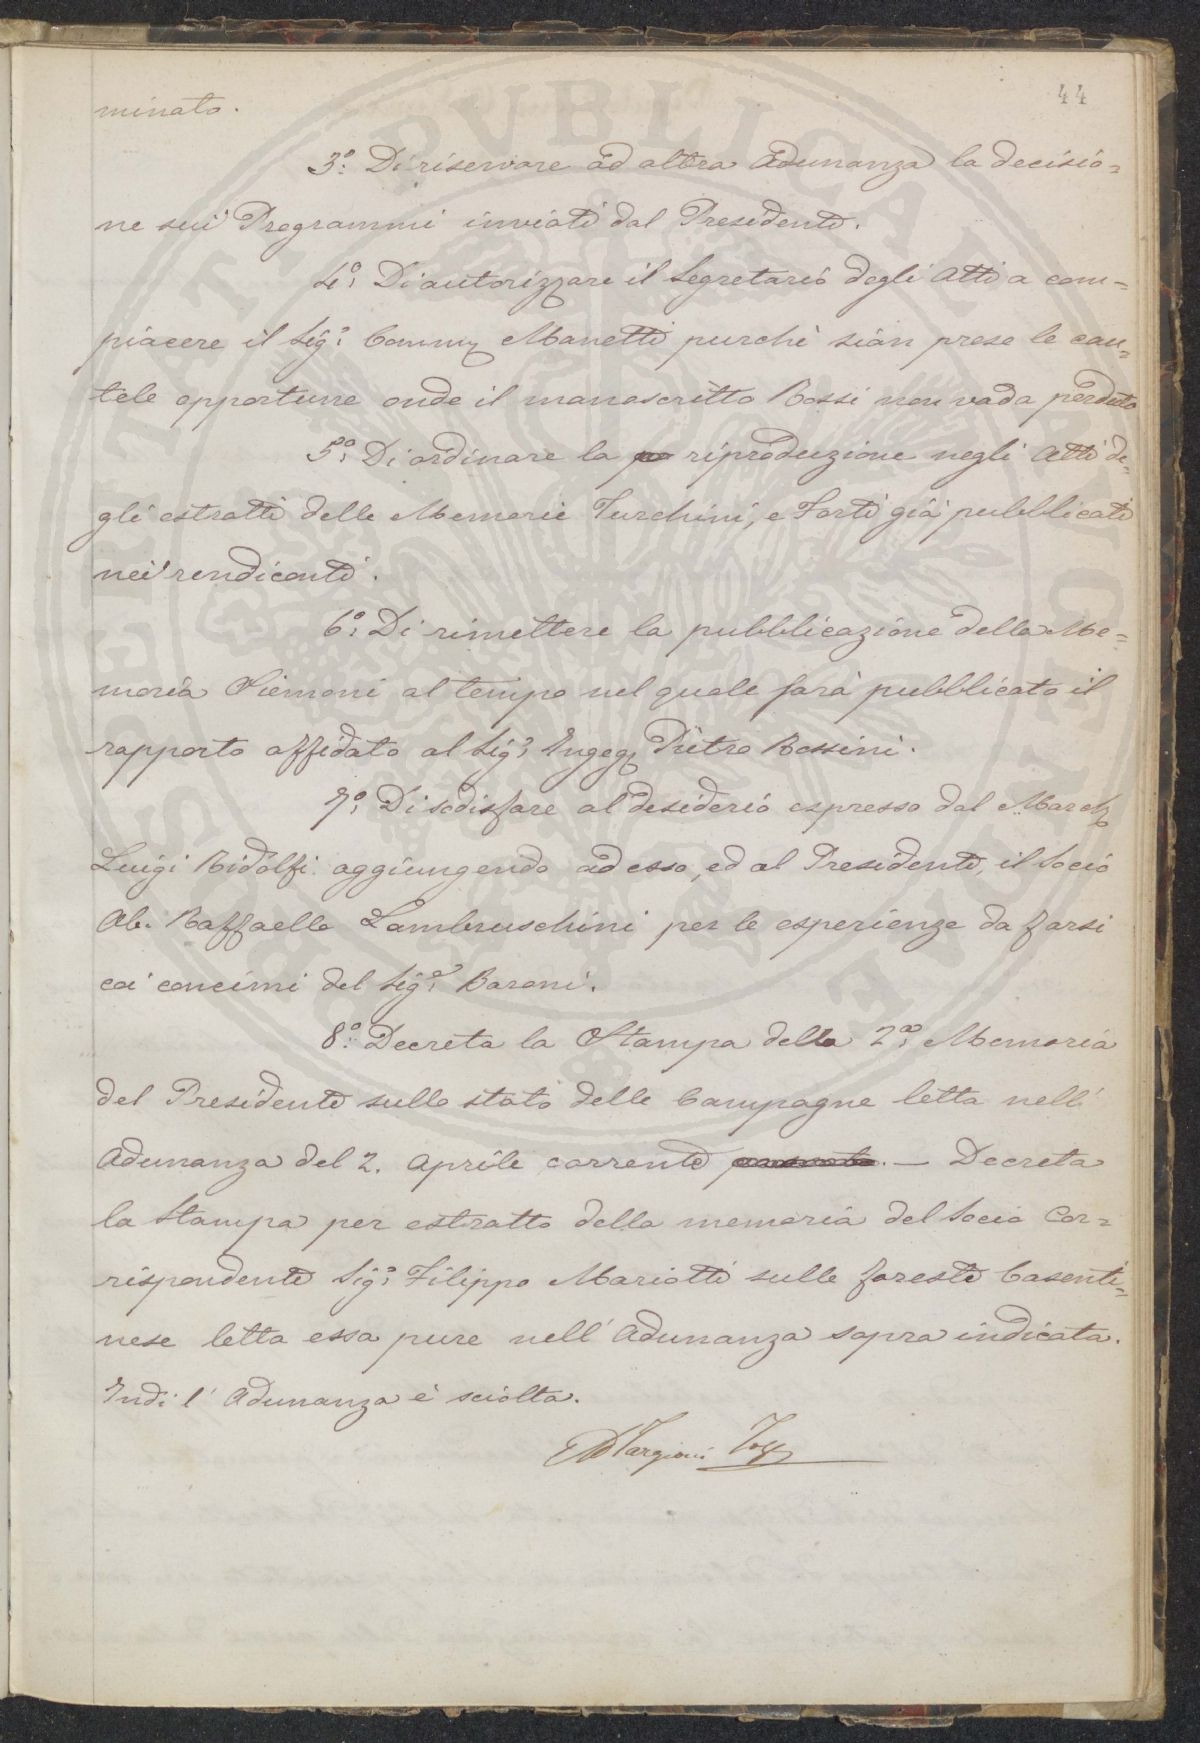 44
minato.
3°: Di riservare ad altra Adunanza la decisio=
ne sui Programmi inviati dal Presidente.
4°: Di autorizzare il Segretario degli Atti a com=
piacere il Sig.r Comm. Manetti purchè sian prese le cau=
tele opportune onde il manoscritto Rossi non vada perduto
5°: Di ordinare la riproduzione negli Atti de=
gli estratti delle Memorie Turchini, e Forti già pubblicati
nei rendiconti.
6°: Di rimettere la pubblicazione della Me=
moria Siemoni al tempo nel quale sarà pubblicato il
rapporto affidato al Sig.r Ingeg. Pietro Rossini.
7°: Di sodisfare al desiderio espresso dal March.
Luigi Ridolfi aggiungendo ad esso, ed al Presidente, il Socio
Ab. Raffaello Lambruschini per le esperienze da farsi
coi concimi del Sig.r Baroni.
8°: Decreta la Stampa della 2a: Memoria
del Presidente sullo stato delle Campagne letta nell'
Adunanza del 2. Aprile corrente. — Decreta
la Stampa per estratto della memoria del Socio Cor=
rispondente Sig.r Filippo Mariotti sulle foreste Casenti=
nese letta essa pure nell'Adunanza sopra indicata.
Indi l'Adunanza è sciolta.
Targioni Tozz
PUBLICAE